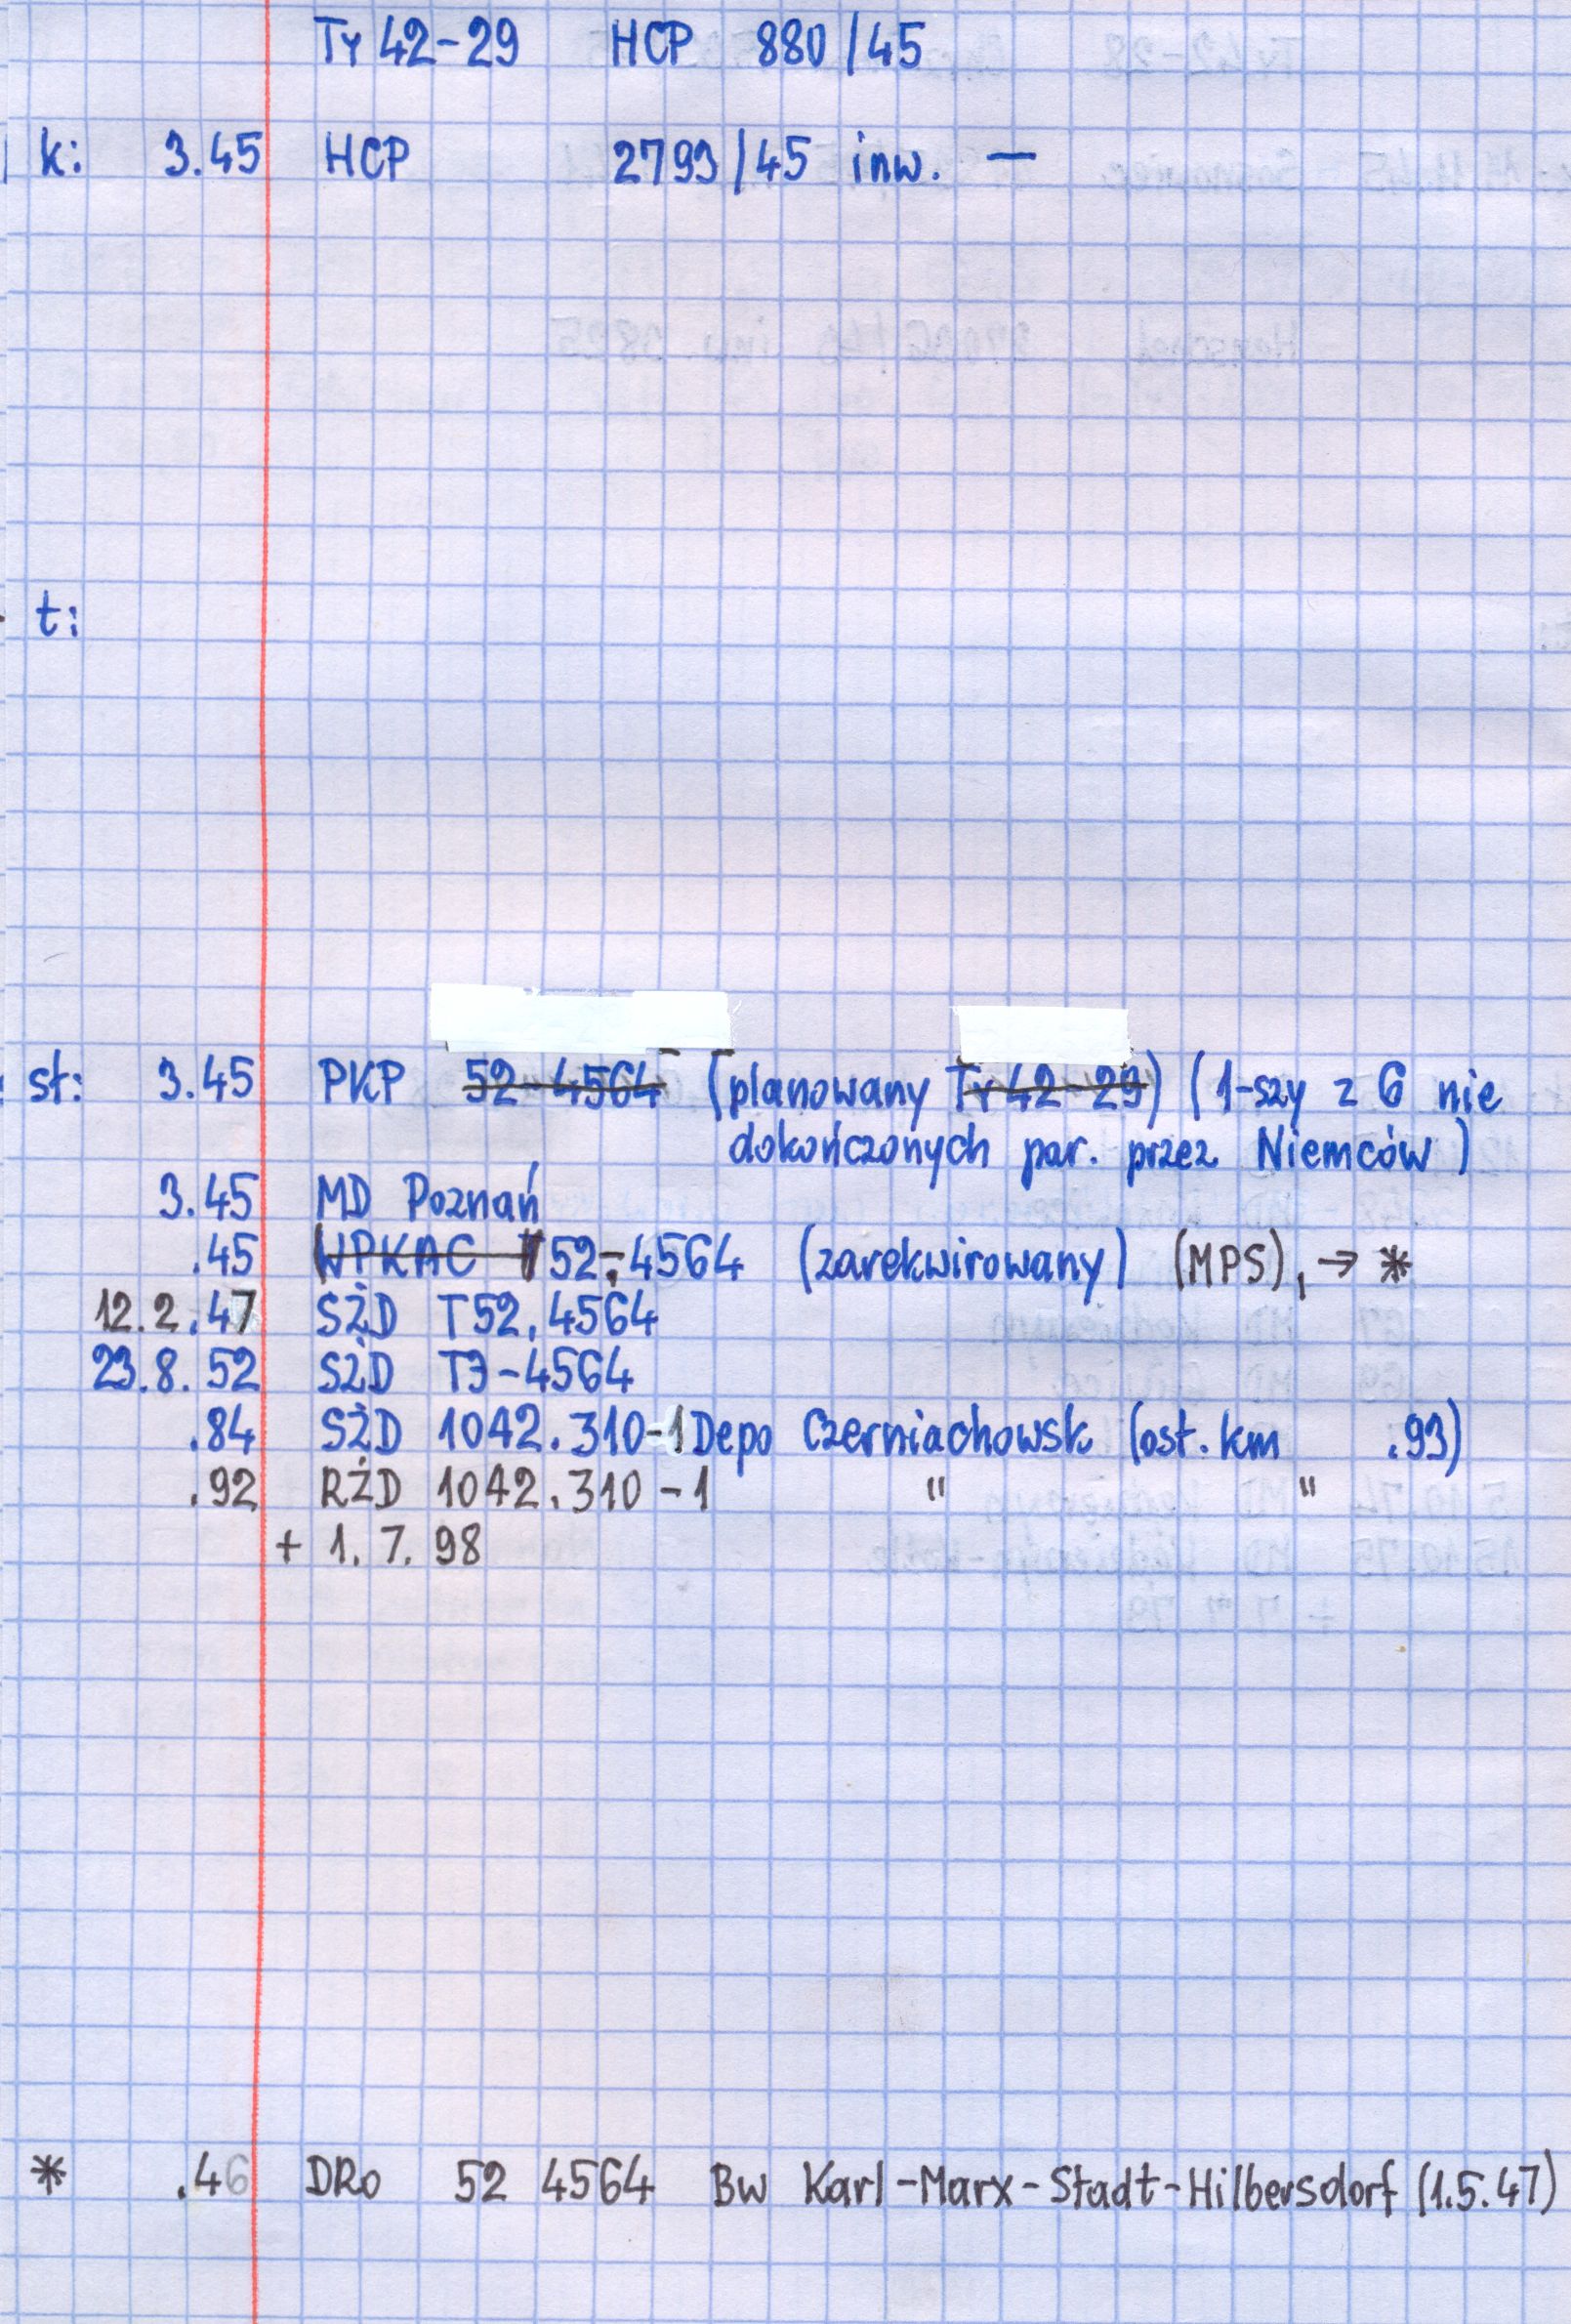 Ty 42-29 HCP 880/45
k: 3.45 HCP 2793/45 inw. —
t:
st: 3.45 PKP 52-4564 (planowany Ty 42-29) (1-szy z 6 nie
dokończonych par. przez Niemców)
3.45 MD Poznań
.45 WPKAC T 52-4564 (zarekwirowany) (MPS), → *
12.2.47 SŻD T52.4564
23.8.52 SŻD TЭ-4564
.84 SŻD 1042.310-1 Depo Czerniachowsk (ost. km .93)
.92 RŻD 1042.310-1 " "
+ 1.7.98
* .46 DRo 52 4564 Bw Karl-Marx-Stadt-Hilbersdorf (1.5.47)